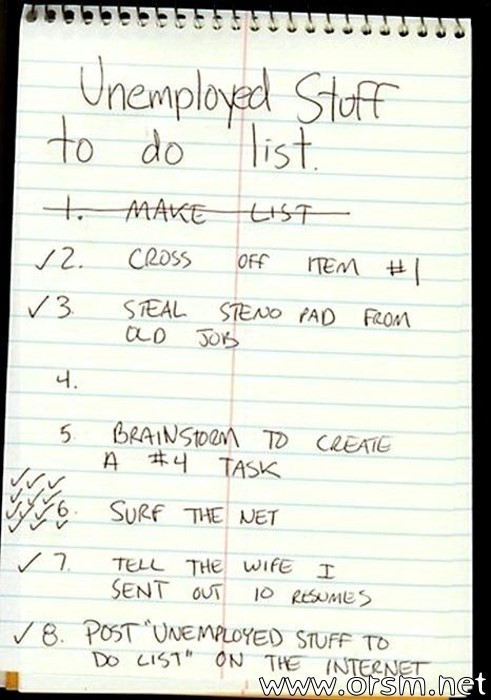 Unemployed Stuff
to do list.
1. MAKE LIST
✓2. CROSS OFF ITEM #1
✓3. STEAL STENO PAD FROM
OLD JOB
4.
5. BRAINSTORM TO CREATE
A #4 TASK
6. SURF THE NET
✓7. TELL THE WIFE I
SENT OUT 10 RESUMES
✓8. POST "UNEMPLOYED STUFF TO
DO LIST" ON THE INTERNET
www.orsm.net